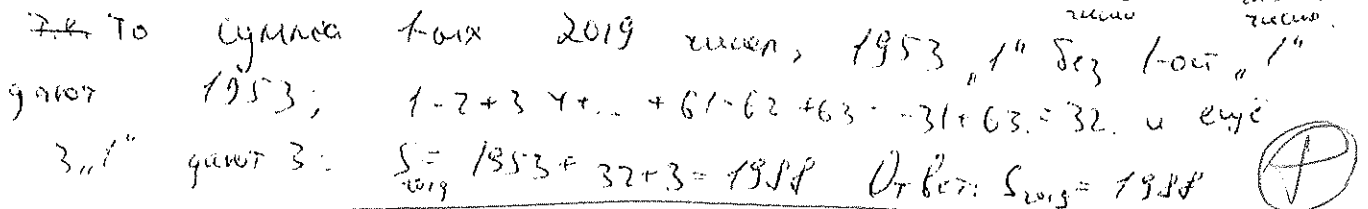 число число.
То сумма 1-ых 2019 чисел, 1953 „1“ без 1-ой „1“
дают 1953; 1-2+3-4+... +61-62+63=-31+63=32. и ещё
3„1“ дают 3: S₂₀₁₉= 1953+32+3=1988 Ответ: S₂₀₁₉=1988